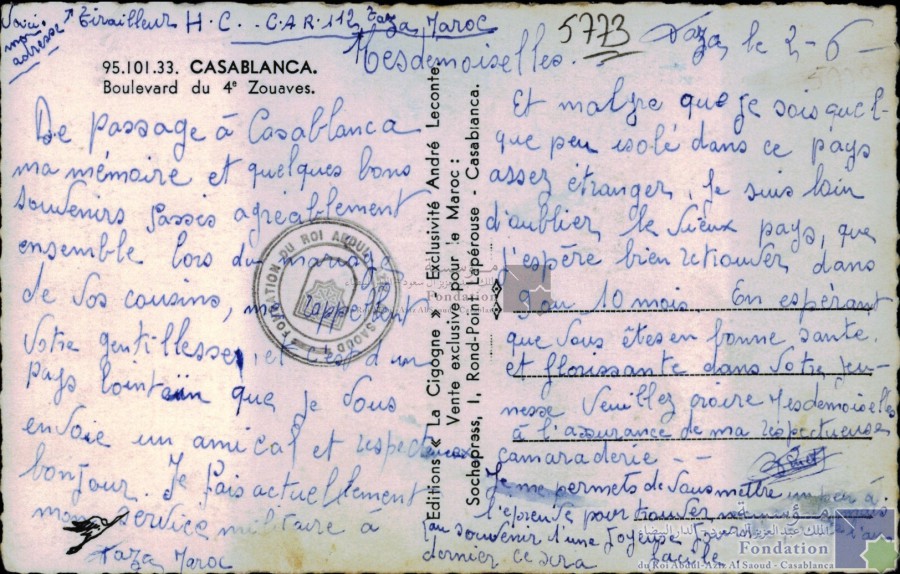 Voici mon adresse → Tirailleur H.C. C.A.R. 112 Taza Maroc
5773
Taza, le 2-6-
95.101.33. CASABLANCA.
Boulevard du 4e Zouaves.
Mesdemoiselles.
De passage à Casablanca
ma mémoire et quelques bons
souvenirs passés agréablement
ensemble lors du mariage
de vos cousins, me rappellent
votre gentillesse, et c'est d'un
pays lointain que je vous
envoie un amical et respectueux
bonjour. Je fais actuellement
mon service militaire à
Taza Maroc
Editions « La Cigogne » - Exclusivité André Leconte,
Vente exclusive pour le Maroc :
Sochepress, 1, Rond-Point Lapérouse - Casablanca.
Et malgre que je sois quel-
que peu isolé dans ce pays
assez étranger, je suis loin
d'oublier le vieux pays, que
j'espère bien retrouver dans
9 ou 10 mois. En espérant
que vous êtes en bonne sante
et florissante dans votre jeu-
nesse Veuillez croire Mesdemoiselles
à l'assurance de ma respectueuse
camaraderie - -
Je me permets de vous mettre un peu à
l'epreuve pour trouver
au souvenir d'une joyeuse
dernier ce sera facile
FONDATION DU ROI ABDUL AZIZ AL SAOUD
Fondation
الملك عبد العزيز آل سعود الدار البيضاء
Fondation
du Roi Abdul-Aziz Al Saoud - Casablanca